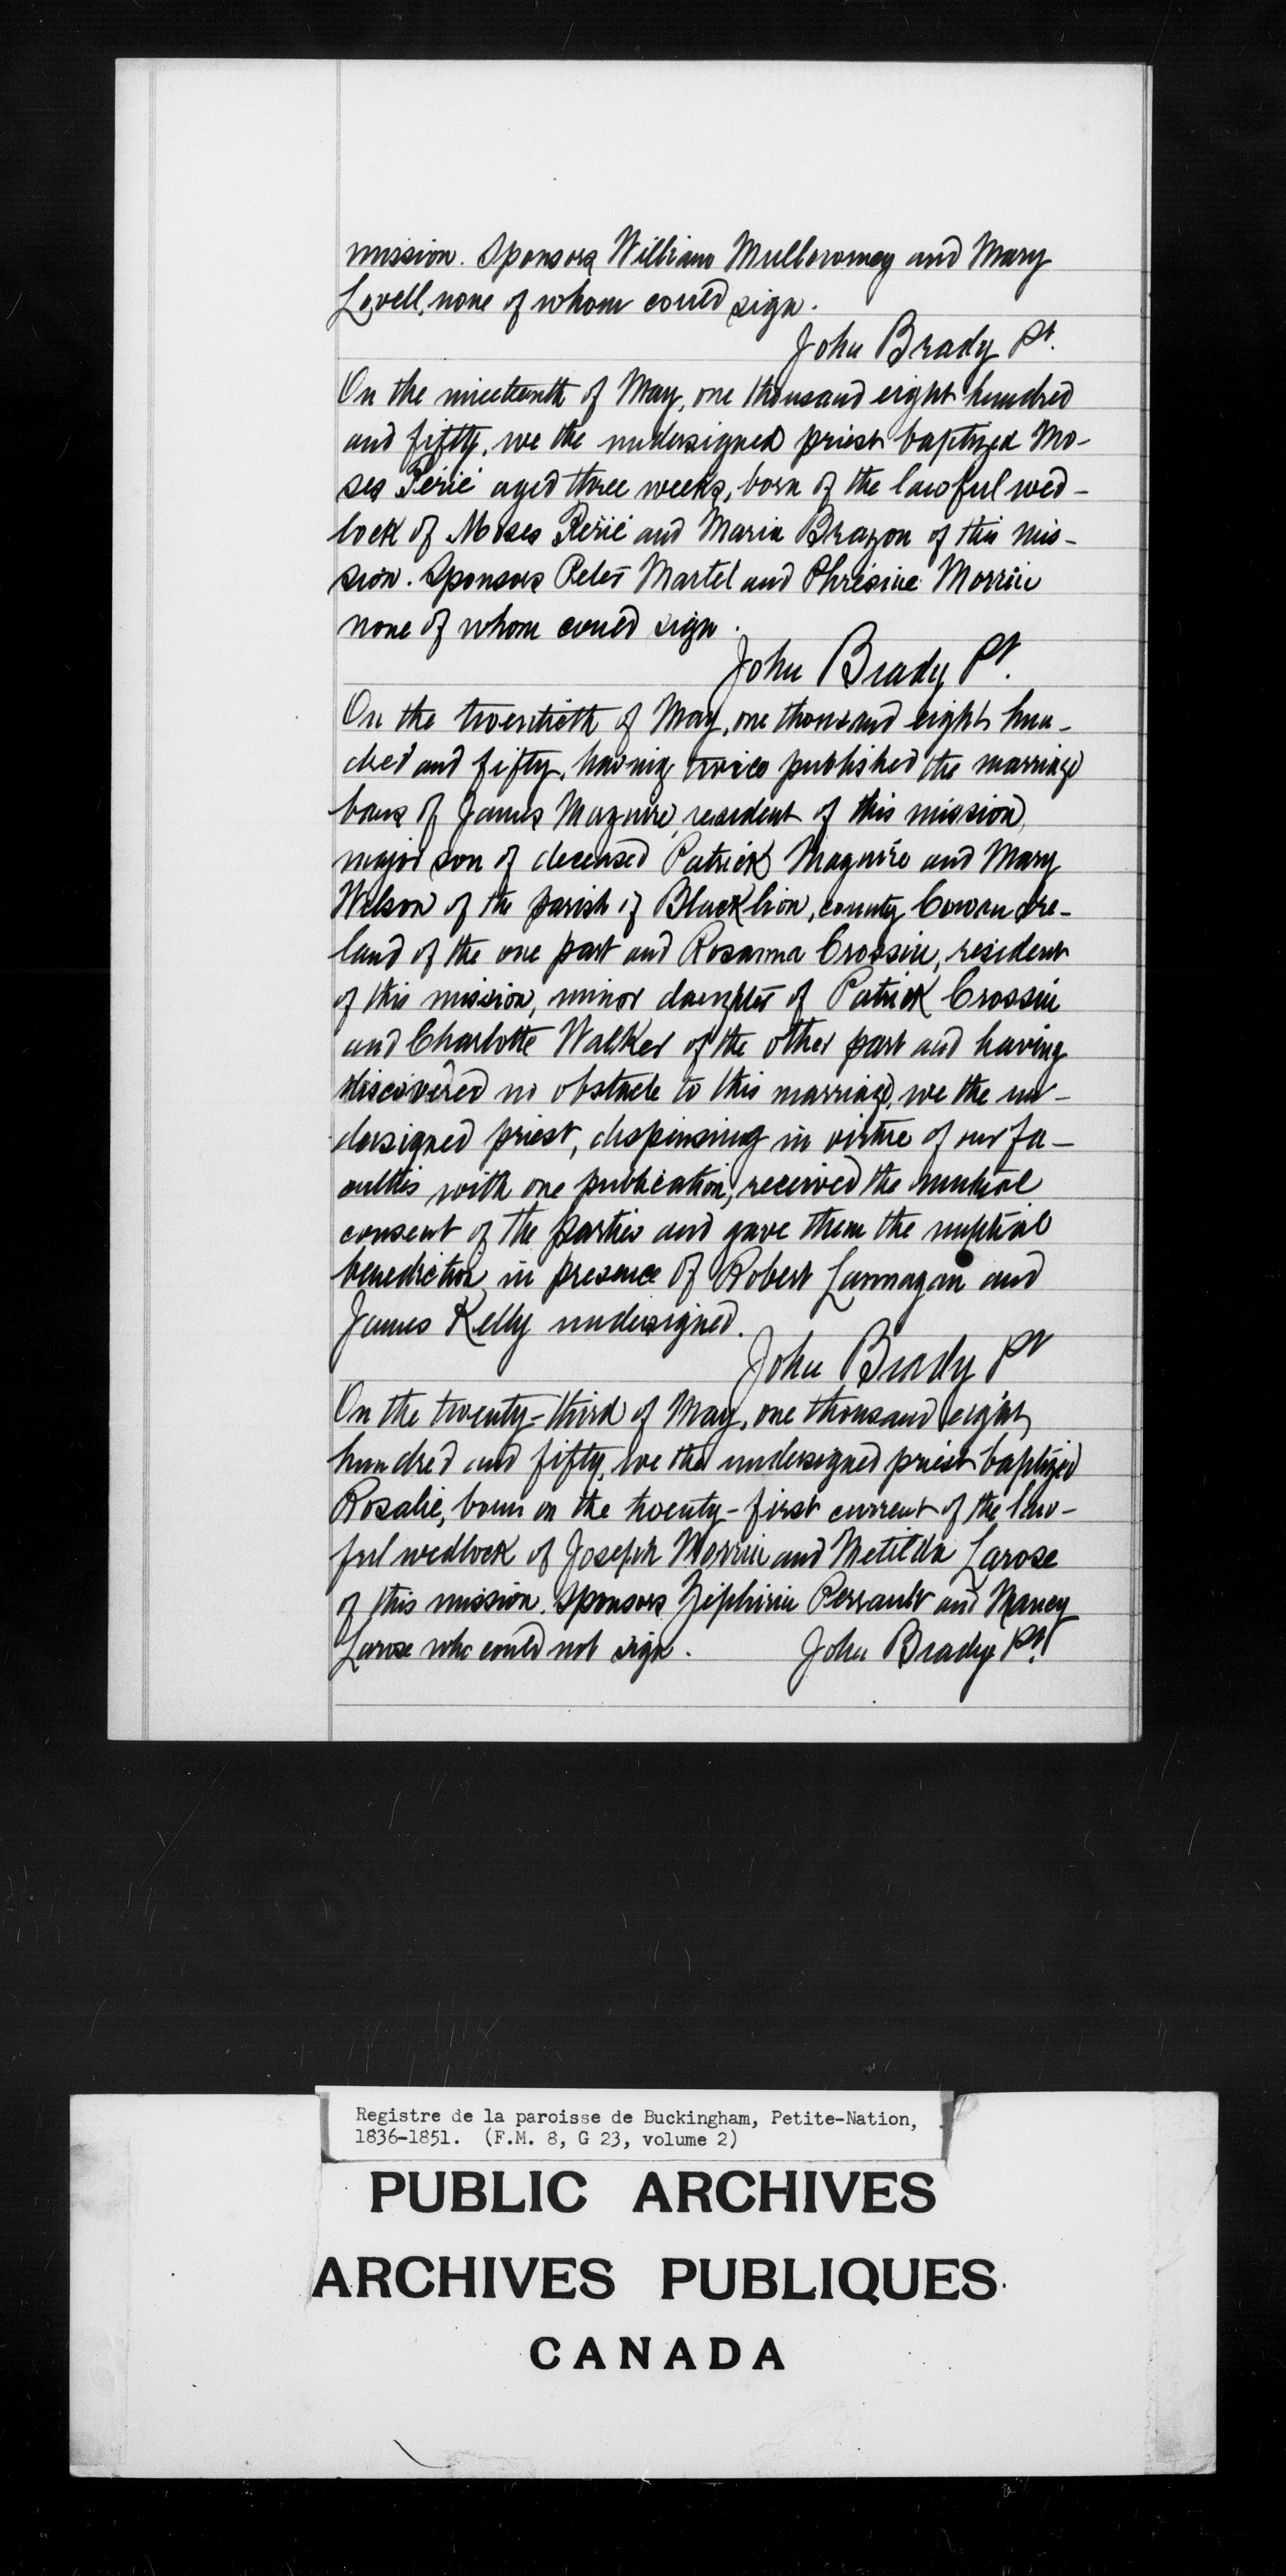 mission. Sponsors William Mullowney and Mary
Lovell, none of whom could sign.
John Brady Pt.
On the nineteenth of May, one thousand eight hundred
and fifty, we the undersigned priest baptized Mo-
ses Périé aged three weeks, born of the lawful wed-
lock of Moses Périé and Maria Brazon of this mis-
sion. Sponsors Peter Martel and Christine Morrin
none of whom could sign.
John Brady Pt.
On the twentieth of May, one thousand eight hun-
dred and fifty, having twice published the marriage
bans of James Maguire, resident of this mission,
major son of deceased Patrick Maguire and Mary
Wilson of the parish of Blacklion, county Cavan Ire-
land of the one part and Rosanna Crossin, resident
of this mission, minor daughter of Patrick Crossin
and Charlotte Walker of the other part and having
discovered no obstacle to this marriage, we the un-
dersigned priest, dispensing in virtue of our fa-
culties with one publication, received the mutual
consent of the parties and gave them the nuptial
benediction in presence of Robert Lannagan and
James Kelly undersigned.
John Brady Pt
On the twenty-third of May, one thousand eight
hundred and fifty, we the undersigned priest baptized
Rosalie, born on the twenty-first current of the law-
ful wedlock of Joseph Morrin and Metilda Larose
of this mission. Sponsors Ziphirin Perrault and Nancy
Larose who could not sign. John Brady Pt.
Registre de la paroisse de Buckingham, Petite-Nation,
1836-1851. (F.M. 8, G 23, volume 2)
PUBLIC ARCHIVES
ARCHIVES PUBLIQUES
CANADA